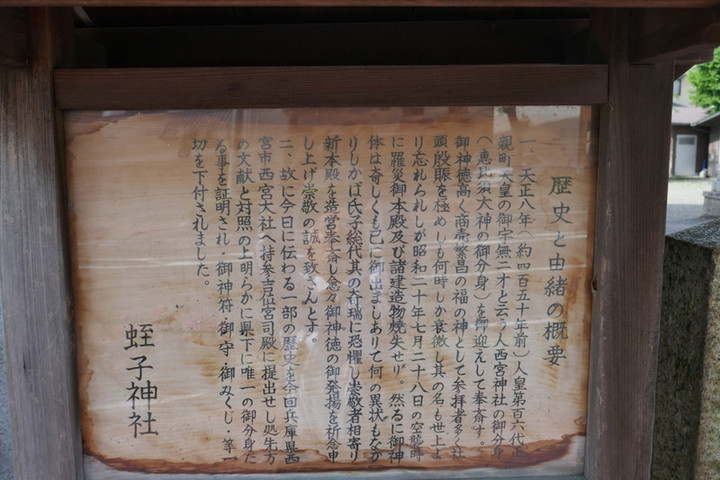 歴史と由緒の概要
一、天正八年（約四百五十年前）人皇第百六代正
親町天皇の御宇無二才と云う人西宮神社の御分身
（恵比須大神の御分身）を御迎えして奉斎す。
御神徳高く商売繁昌の福の神として参拝者多く社
頭殷賑を極めしも何時しか衰微し其の名も世上よ
り忘れられしが昭和二十年七月二十八日の空襲時
に羅災御本殿及び諸建造物焼失せり。然るに御神
体は奇しくも已に御出ましありて何の異状もなか
りしかば氏子総代其の奇瑞に恐懼し崇敬者相寄り
新本殿を造営奉斎し愈々御神徳の御発揚を祈念申
し上げ崇敬の誠を致さんとす。
二、故に今日に伝わる一部の歴史を今回兵庫県西
宮市西宮大社へ持参吉位宮司殿に提出せし処先方
の文献と対照の上明らかに県下に唯一の御分身た
る事を証明され・御神符・御守・御みくじ・等一
切を下付されました。
蛭子神社